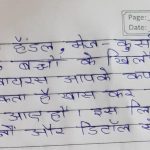 Page:
Date:
हैंडल, मेज - कुर्स
बच्चों के खिलौ
वायरस आपके कप
कता है खास कर
आदि हो। इस लि
और डिटॉल से